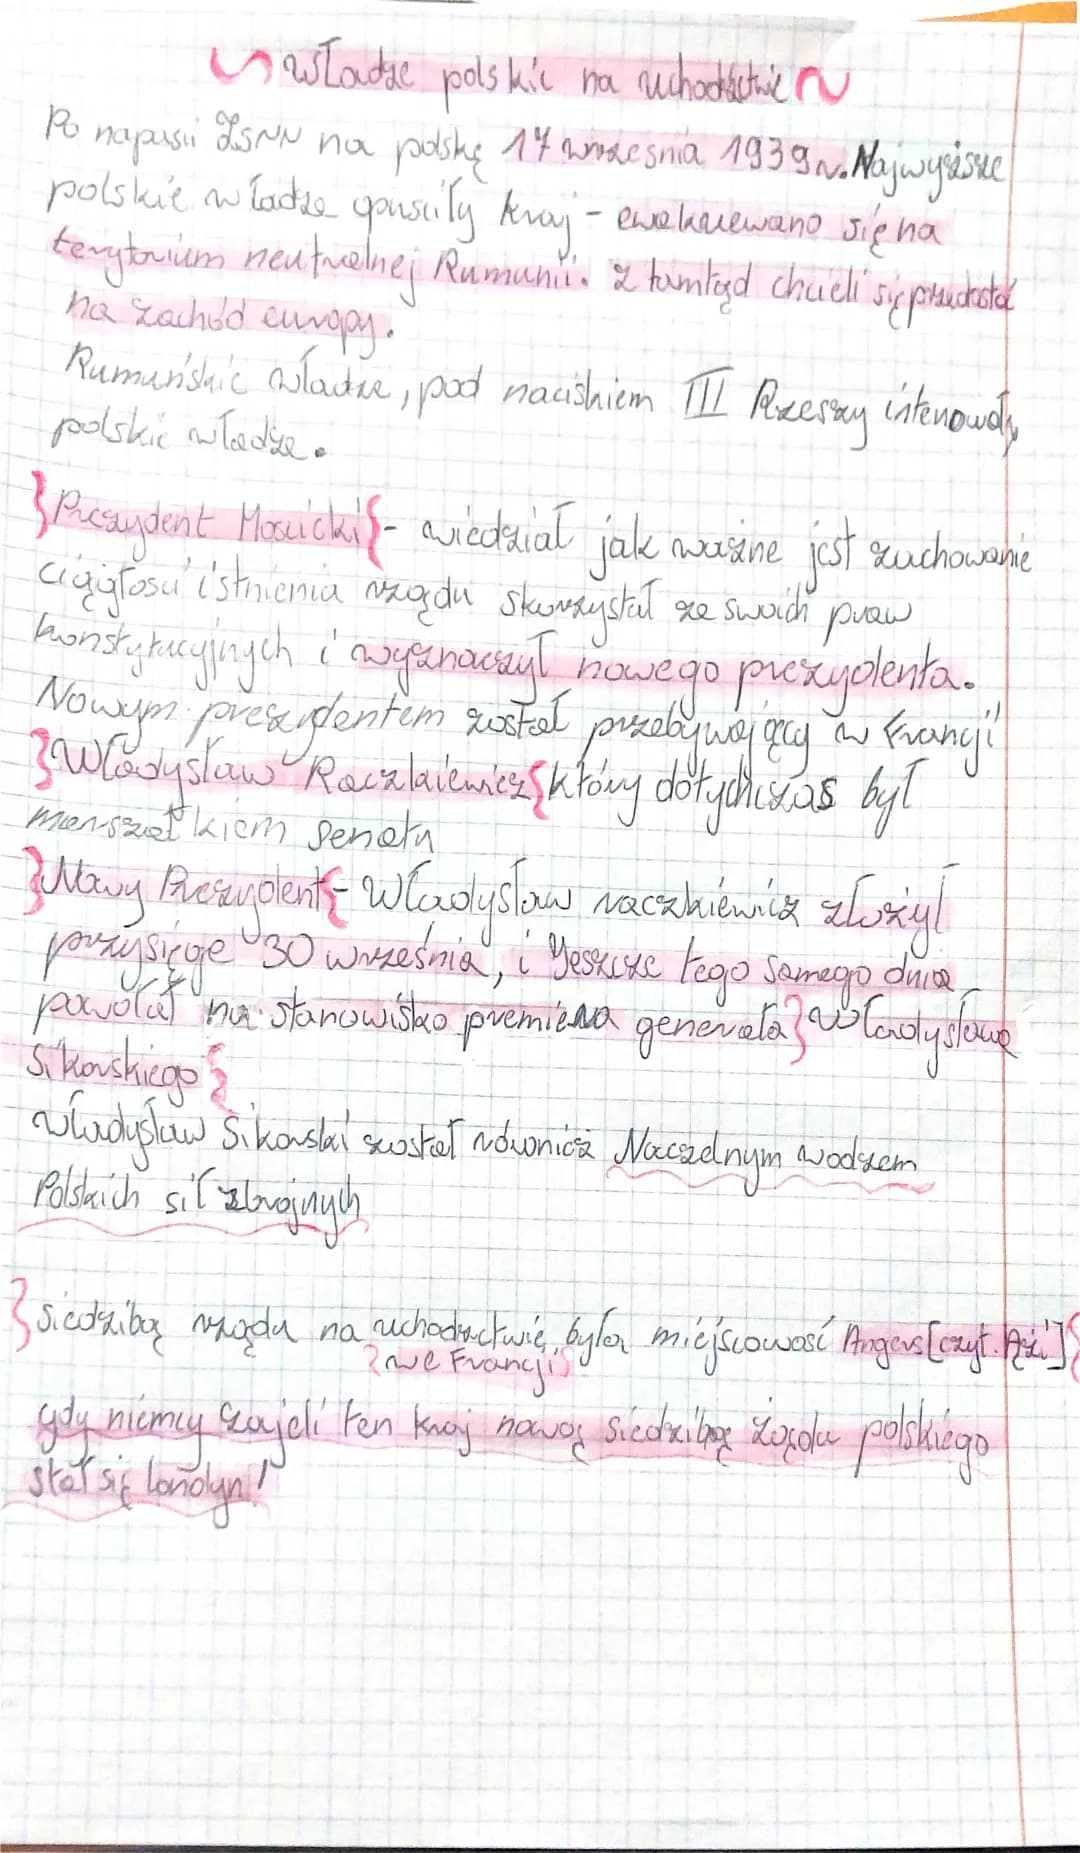 Władze polskie na uchodźctwie
Po napaści ZSRR na polskę 17 wrzesnia 1939r. Najwyższe
polskie władze opusciły kraj - ewakuewano się na
terytorium neutralnej Rumunii. Z tamtąd chcieli się przedostać
na zachód europy.
Rumuńskie władze, pod naciskiem III Rzeszy intenowały
polskie władze.
Prezydent Moscicki - wiedział jak ważne jest zachowanie
ciągłosci istnienia rządu skorzystał ze swoich praw
konstytucyjnych i wyznaczył nowego prezydenta.
Nowym prezydentem został przebywający w Francji
Władysław Raczkiewicz który dotychczas był
marszałkiem senatu
Nowy Prezydent - Władysław raczkiewicz złożył
przysięge 30 września, i Jeszcze tego samego dnia
powołał na stanowisko premiera generała Władysława
Sikorskiego
Władysław Sikorski został również Naczelnym wodzem
Polskich sił zbrojnych
Siedzibą rządu na uchodzctwie była miejscowość Angers [czyt. Ąży]
we Francji
gdy niemcy zajeli ten kraj nową siedzibą rządu polskiego
stał się londyn!